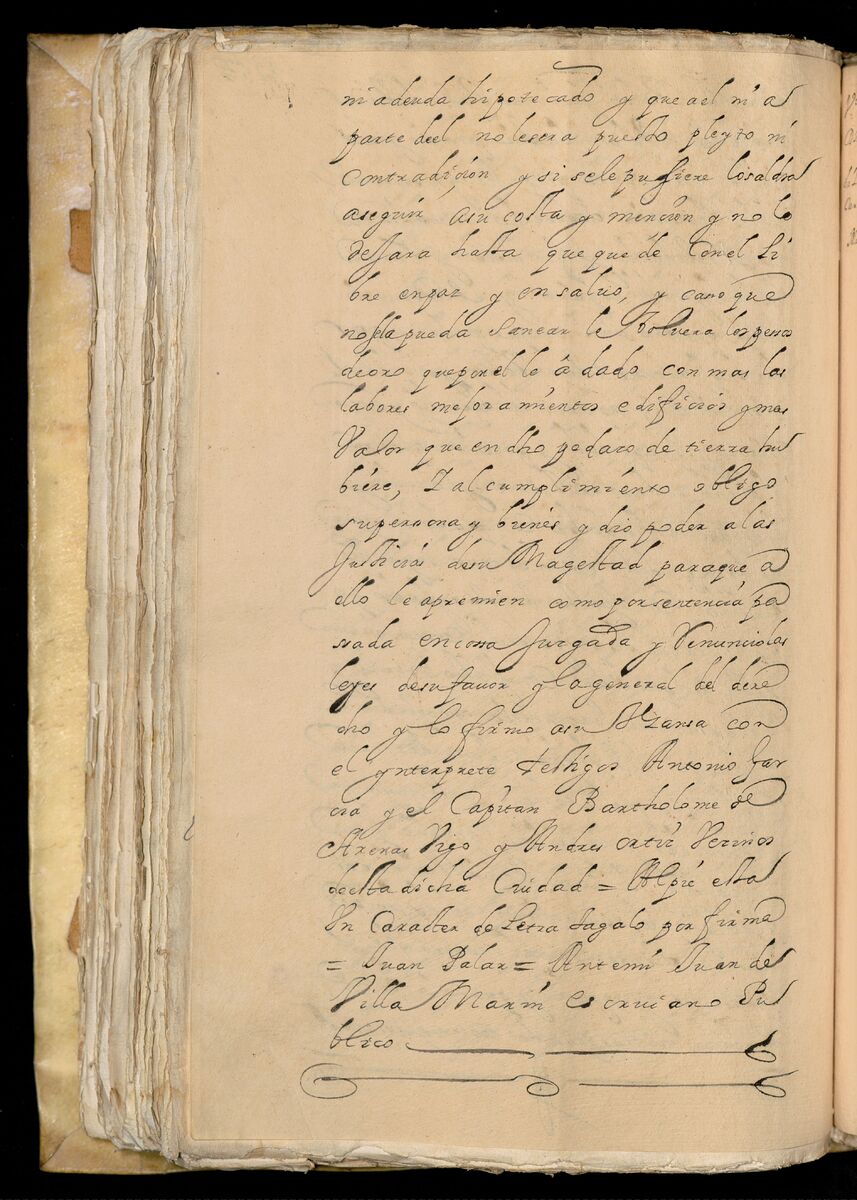 ni adeuda hipotecado y que a el ni a
parte deel no lestra puesto pleyto ni
Contradiçion y si sele pusiere lo saldra
aseguir asu costa y mencion y no lo
dessara hasta que que de Con el Li
bre en paz y en saluo, y caso que
no sela pueda sanear le Voluera los pesos
de oro que por el le à dado con mas las
labores mejoramientos edificios y mas
Valor que en dho pedaço de tierra hu
biere, Y al cumplimiento obligo
su persona y bienes y dio poder a las
Justicias de su Magestad para que a
ello le apremien como por sentencia pa
ssada en cossa Jurgada y Renuncio las
leyes de su fauor y la general del dere
cho y lo firmo a su Vzansa con
el ynterprete testigos Antonio Gar
cia y el Capitan Bartholome de
Arenas Vigo y Andres ortiz Vezinos
deesta dicha Ciudad = Al pie esta
Vn Caracter de Letra tagalo por firma
= Juan Palar = Ante mi Juan de
Villa Marin Escruiano Pu
blico